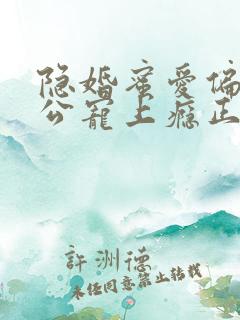 隐婚蜜爱偏
公宠上瘾正
許洲德
未经同意禁止转载